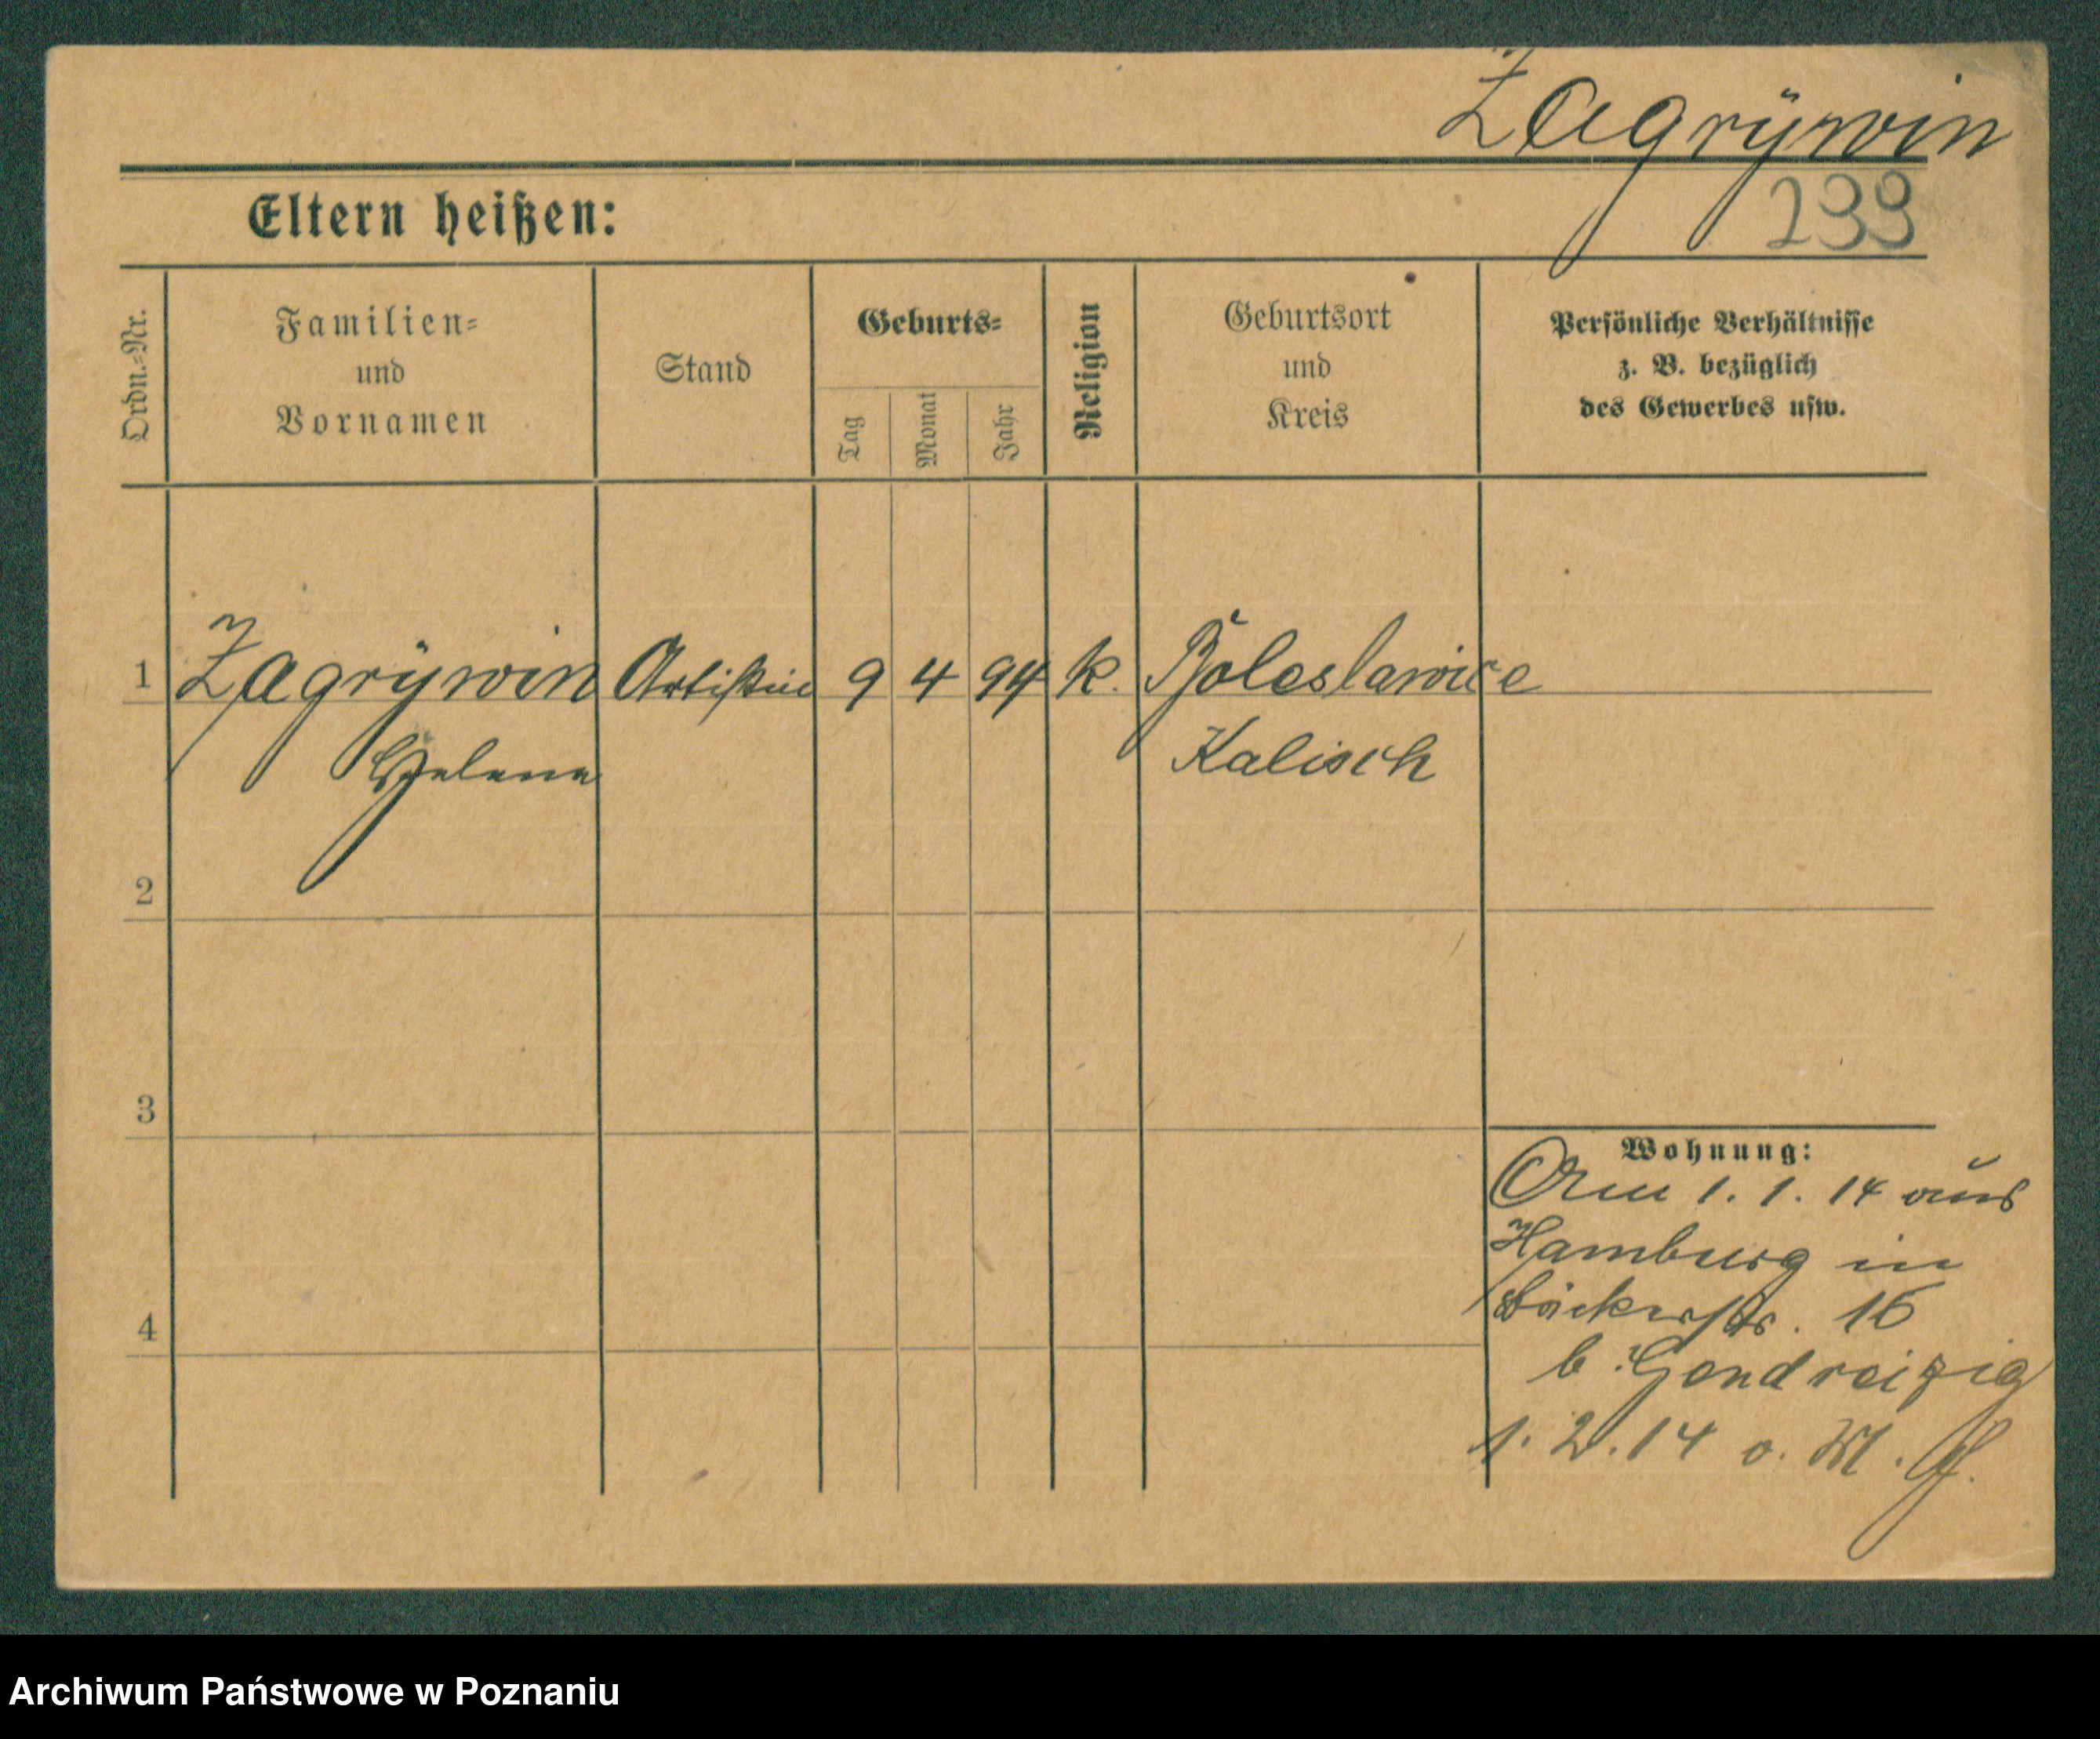 Zagrÿwin
Eltern heißen:
239
Ordn.=Nr.
Familien=
und
Vornamen
Stand
Geburts=
Tag
Monat
Jahr
Religion
Geburtsort
und
Kreis
Persönliche Verhältnisse
z. B. bezüglich
des Gewerbes usw.
1 Zagrÿwin Artistin 9 4 94 k. Boleslawice
Helene Kalisch
2
3
4
Wohnung:
Am 1. 1. 14 aus
Hamburg in
Bäckerstr. 16
b. Gendreizig
1. 2. 14 o. M.
Archiwum Państwowe w Poznaniu